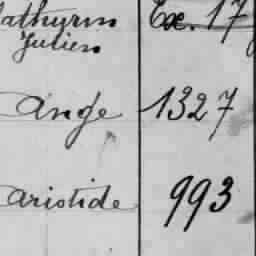 Mathurin Ex. 17
Julien
Ange 1327
Aristide 993